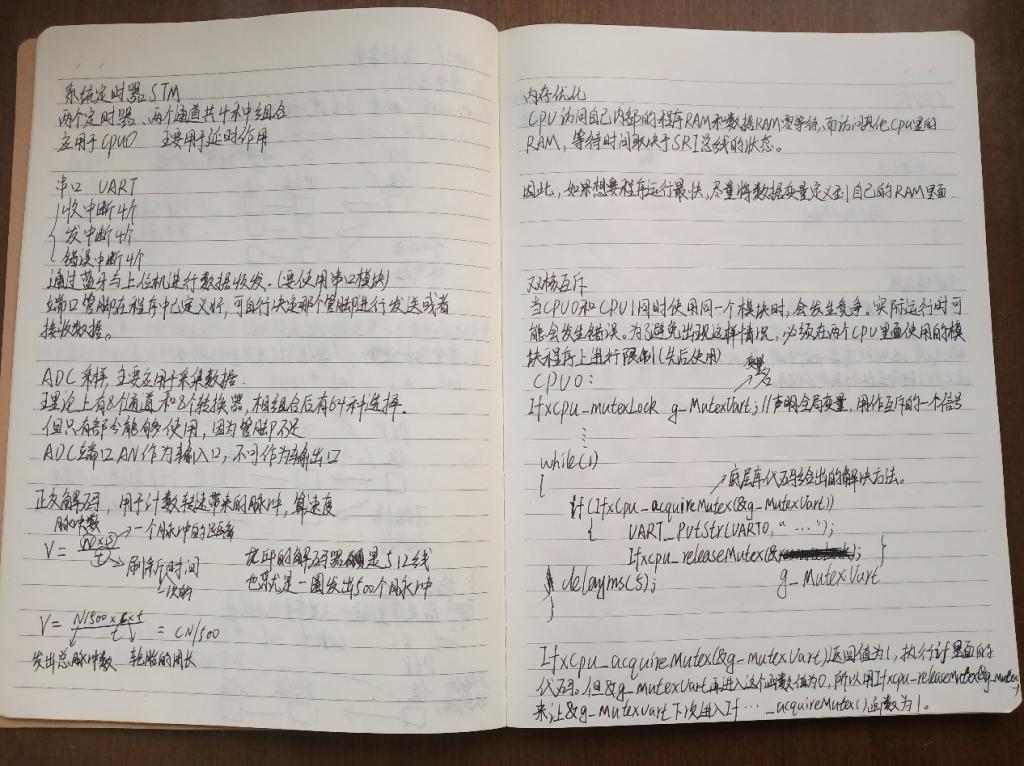 系统定时器STM
两个定时器、两个通道共4种中组合
应用于CPU0 主要用于延时作用
串口 UART
收中断4个
发中断4个
错误中断4个
通过蓝牙与上位机进行数据收发.(要使用串口模块)
端口管脚在程序中已定义好,可自行决定那个管脚进行发送或者
接收数据。
ADC采样 主要应用于采集数据.
理论上有8个通道和8个转换器,相组合后有64种选择.
但只有部分能够使用,因为管脚不足
ADC端口AN作为输入口,不可作为输出口
正交解码,用于计数转速带来的脉冲,算速度
脉冲数
一个脉冲的距离
V=
刷新时间
龙邱的解码器 是512线
也就是一圈发出500个脉冲
V= N/500×C×t / t = CN/500
发出总脉冲数、轮胎的周长
内存优化
CPU访问自己内部的程序RAM和数据RAM零等待,而访问其他CPU里的
RAM,等待时间取决于SRI总线的状态。
因此,如果想要程序运行最快,尽量将数据变量定义到自己的RAM里面.
双核互斥
当CPU0和CPU1同时使用同一个模块时,会发生竞争。实际运行时可
能会发生错误。为了避免出现这样情况,必须在两个CPU里面使用的模
块程序上进行限制(先后使用)
变量名
CPU0:
IfxCpu_mutexLock g_MutexVart; //声明全局变量,用作互斥的一个信号
while(1)
底层库代码给出的解决方法。
{
if(IfxCpu_acquireMutex(&g_MutexVart))
{ UART_PutStr(UART0,"…");
IfxCpu_releaseMutex(& ); }
g_MutexVart
delayms(5);
}
IfxCpu_acquireMutex(&g_mutexVart)返回值为1,执行if里面的
代码。但&g_mutexVart再进入这个函数值为0,所以用IfxCpu_releaseMutex(&g_mutex
来让&g_mutexvart下次进入If…_acquireMutex()函数为1。